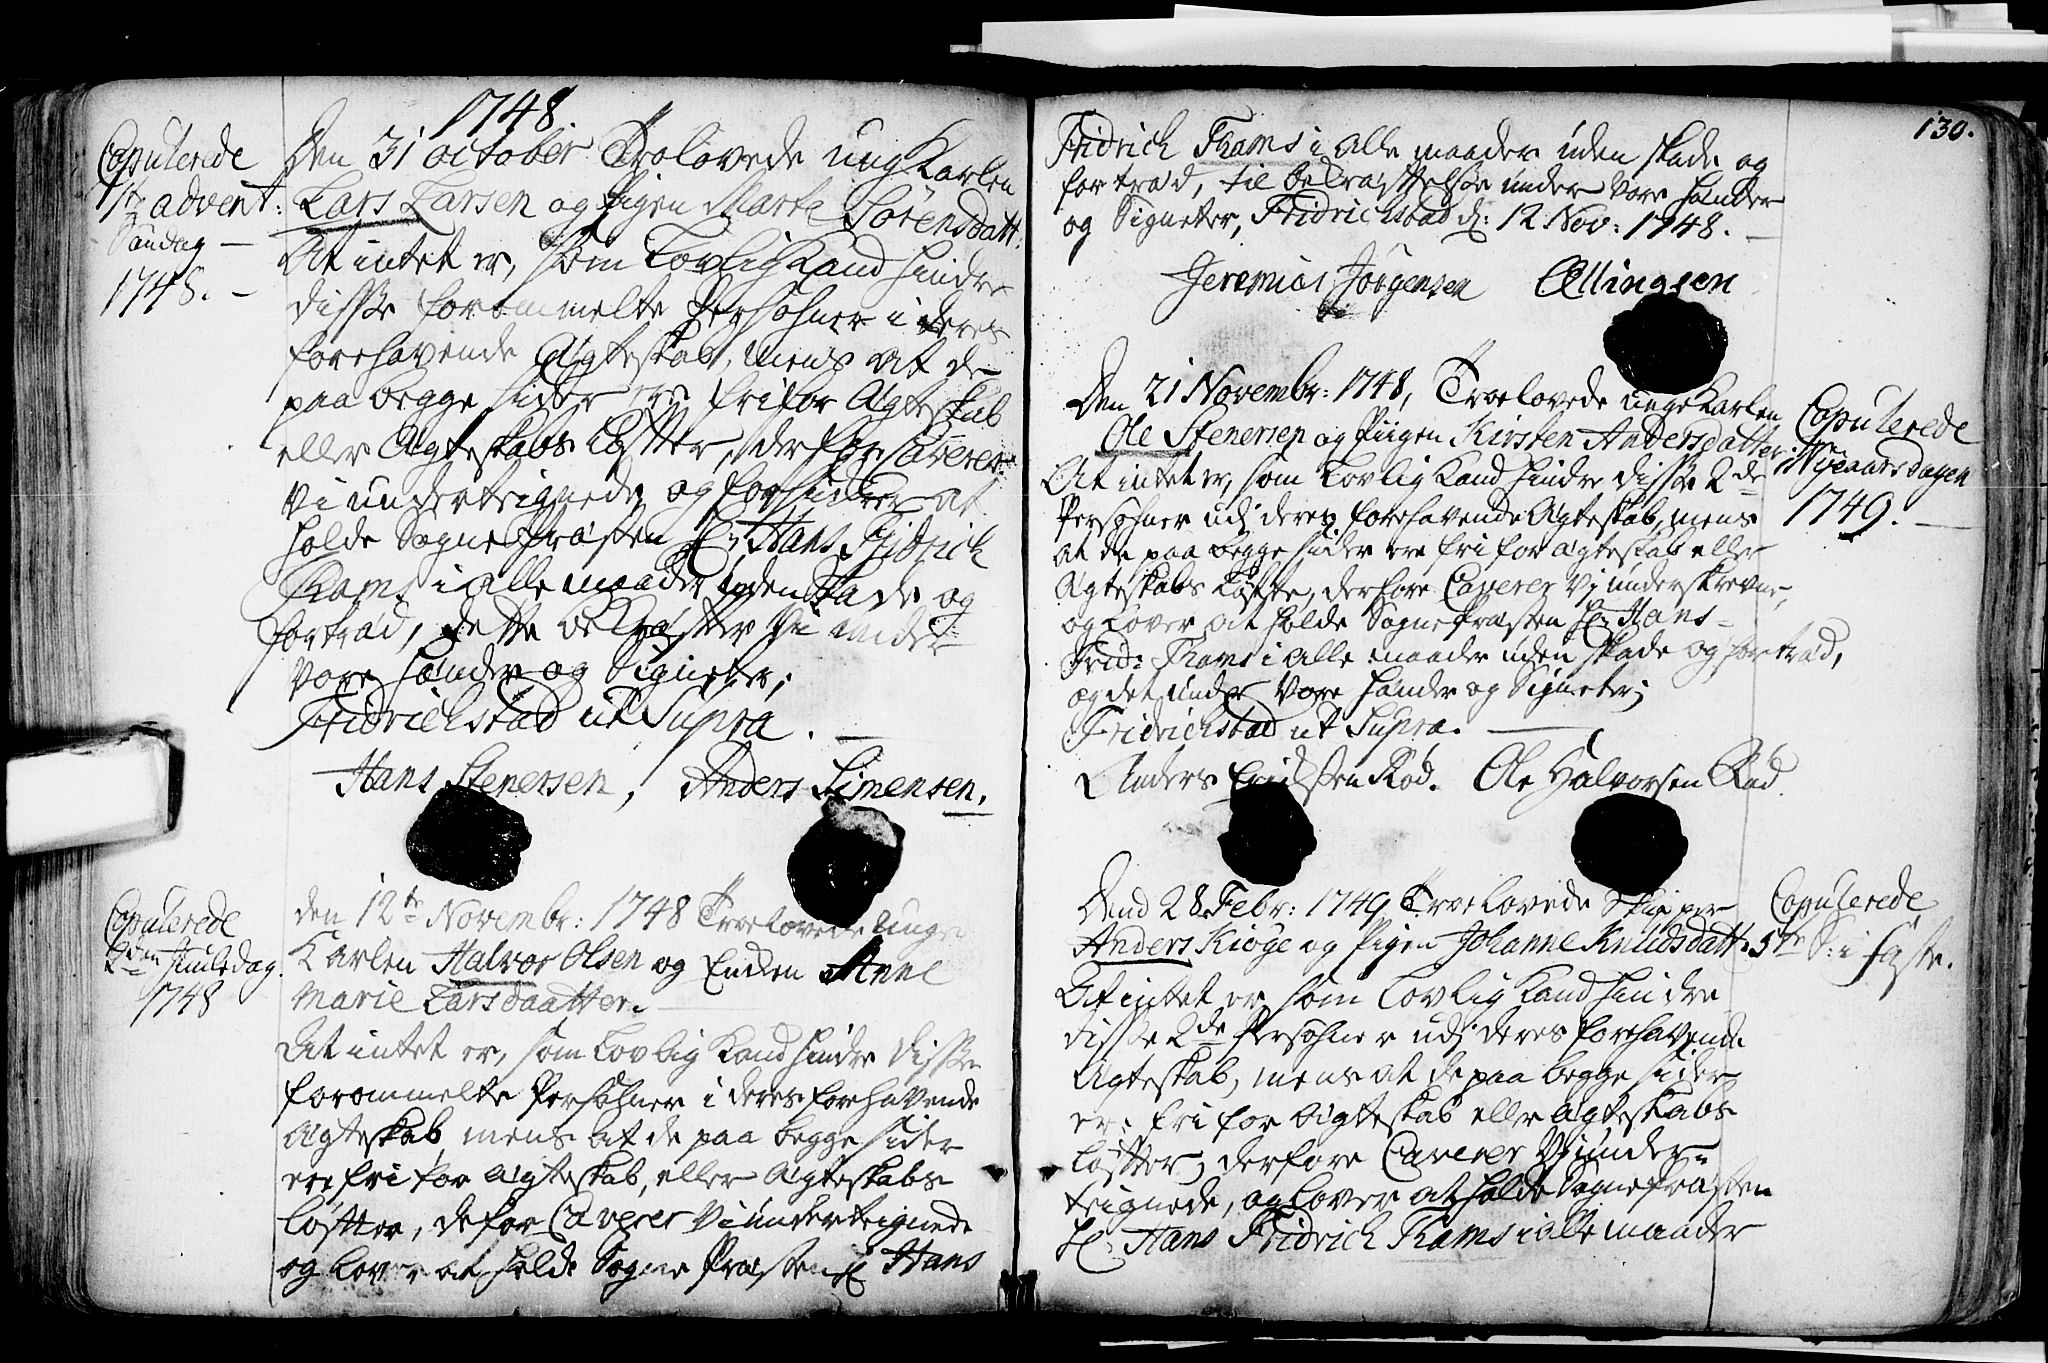 1748.
Copulerede
1ste advent:
Søndag
1748.
Den 31 october Trolovede ung Karlen
Lars Larsen og Pigen Marte Sørensdatt.
At intet er, som Lovlig Kand hindre
disse forommelte Persohner i deres
forehavende Ægteskab, mens at de
paa begge sider ere fri for Ægteskab
eller Ægteskabs Løfter, derfor Caverer
vi undertegnede, og forsikrer at
holde Sogne Præsten Hr: Hans Fridrich
Thams i alle maader uden skade og
fortræd, dette bekræfter vi under
vore hænder og Signeter;
Fridrichstad ut Supra.
Hans Stenersen, Anders Simensen.
Copulerede
2den Juledag
1748
den 12te Novembr: 1748 Troelovede unge
Karlen Halvor Olsen og Enken Anne
Marie Larsdaatter.
At intet er, som Lovlig Kand hindre disse
forommelte Persohner i deres forehavende
Ægteskab, mens at de paa begge sider
ere fri for Ægteskab, eller Ægteskabs
løfter, defor Caverer Vi undertegnede
og lover at holde Sogne Præsten Hr Hans
130.
Fridrich Thams i alle maader uden skade og
fortræd, til bekræftelse under Vore hænder
og Signeter, Fridrichstad d: 12 Nov: 1748.
Jeremias Jørgensen Ellingsen
Den 21 Novembr: 1748, Troelovede unge Karlen
Ole Stenersen og Piigen Kirsten Andersdatter
At intet er, som Lovlig Kand hindre disse 2de
Persohner udi deres forehavende Ægteskab, mens
at de paa begge sider ere fri for Ægteskab eller
Ægteskabs Løfte, derfore Caverer Vi underskrevne,
og Lover at holde Sogne Præsten Hr. Hans
Frid: Thams i alle maader uden skade og fortræd,
og det under Vore hænder og Signeter;
Fridrichstad ut Supra.
Anders Rød. Ole Halvorsen Rød
Copulerede
Nyeaarsdagen
1749.
Dend 28 Febr: 1749 Troelovede Skipper
Anders Kiøge og Pigen Johanne Knudsdatt:
At intet er som Lovlig Kand hindre
disse 2de Persohner udi deres forehavende
Ægteskab, mens at de paa begge sider
er fri for Ægteskab eller Ægteskabs
løfter, derfore Caverer Vi under-
tegnede, og lover at holde Sogne Præsten
Hr. Hans Fridrich Thams i alle maader
Copulerede
5te S: i faste.